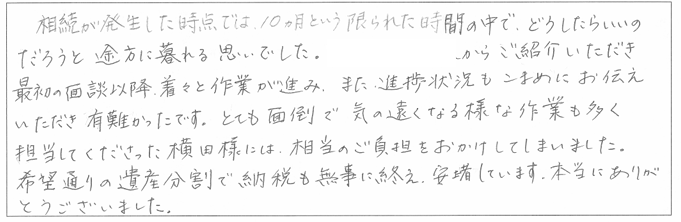 相続が発生した時点では、10ヵ月という限られた時間の中で、どうしたらいいの
だろうと途方に暮れる思いでした。 からご紹介いただき
最初の面談以降、着々と作業が進み、また、進捗状況もこまめにお伝え
いただき有難かったです。とても面倒で気の遠くなる様な作業も多く
担当してくださった横田様には、相当のご負担をおかけしてしまいました。
希望通りの遺産分割で納税も無事に終え、安堵しています。本当にありが
とうございました。